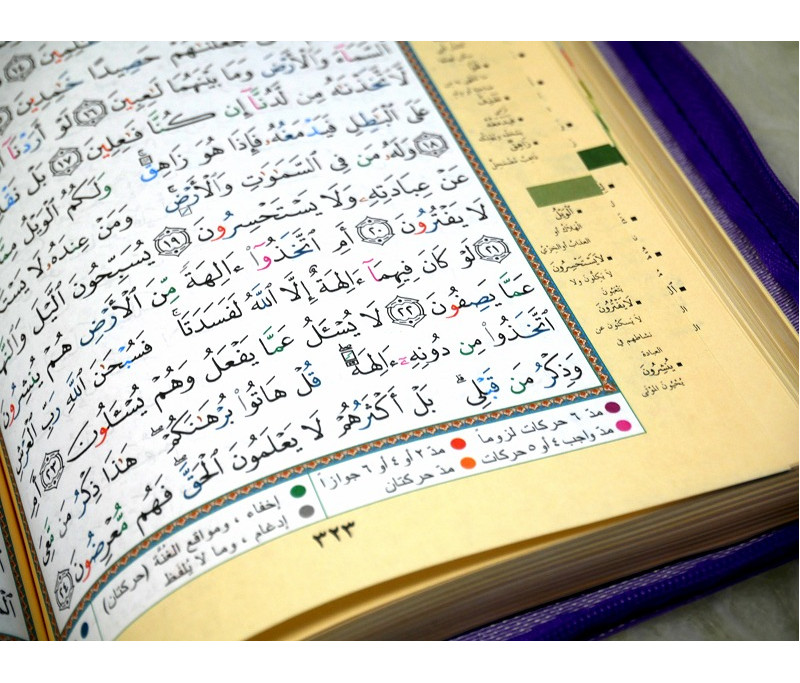 جَعَلْنَٰهُمْ حَصِيدًا خَٰمِدِينَ
ٱلسَّمَآءَ وَٱلْأَرْضَ وَمَا بَيْنَهُمَا لَٰعِبِينَ ١٦ لَوْ أَرَدْنَآ
لَّٱتَّخَذْنَٰهُ مِن لَّدُنَّآ إِن كُنَّا فَٰعِلِينَ ١٧ بَلْ
عَلَى ٱلْبَٰطِلِ فَيَدْمَغُهُۥ فَإِذَا هُوَ زَاهِقٌ وَلَكُمُ ٱلْوَيْلُ
١٨ وَلَهُۥ مَن فِى ٱلسَّمَٰوَٰتِ وَٱلْأَرْضِ وَمَنْ عِندَهُۥ لَا
عَنْ عِبَادَتِهِۦ وَلَا يَسْتَحْسِرُونَ ١٩ يُسَبِّحُونَ ٱلَّيْلَ
لَا يَفْتُرُونَ ٢٠ أَمِ ٱتَّخَذُوٓا۟ ءَالِهَةً مِّنَ ٱلْأَرْضِ هُمْ يُنشِرُونَ
٢١ لَوْ كَانَ فِيهِمَآ ءَالِهَةٌ إِلَّا ٱللَّهُ لَفَسَدَتَا فَسُبْحَٰنَ ٱللَّهِ رَبِّ ٱلْعَرْشِ
عَمَّا يَصِفُونَ ٢٢ لَا يُسْـَٔلُ عَمَّا يَفْعَلُ وَهُمْ يُسْـَٔلُونَ ٢٣ أَمِ
ٱتَّخَذُوا۟ مِن دُونِهِۦٓ ءَالِهَةً قُلْ هَاتُوا۟ بُرْهَٰنَكُمْ هَٰذَا ذِكْرُ مَن مَّعِىَ
وَذِكْرُ مَن قَبْلِى بَلْ أَكْثَرُهُمْ لَا يَعْلَمُونَ ٱلْحَقَّ فَهُم مُّعْرِضُونَ ٢٤
زَاهِقٌ
ٱلْوَيْلُ
لَا يَسْتَحْسِرُونَ
لَا يَفْتُرُونَ
لا يسكنون عن
نشاطهم في
العبادة
يُنشِرُونَ
يُحيون الموتى
مدّ ٦ حركات لزوماً
مدّ ٢ أو ٤ أو ٦ جوازاً
مدّ واجب ٤ أو ٥ حركات
مدّ حركتان
إخفاء ، ومواقع الغُنَّة (حركتان)
إدغام ، وما لا يُلفظ
٣٢٣